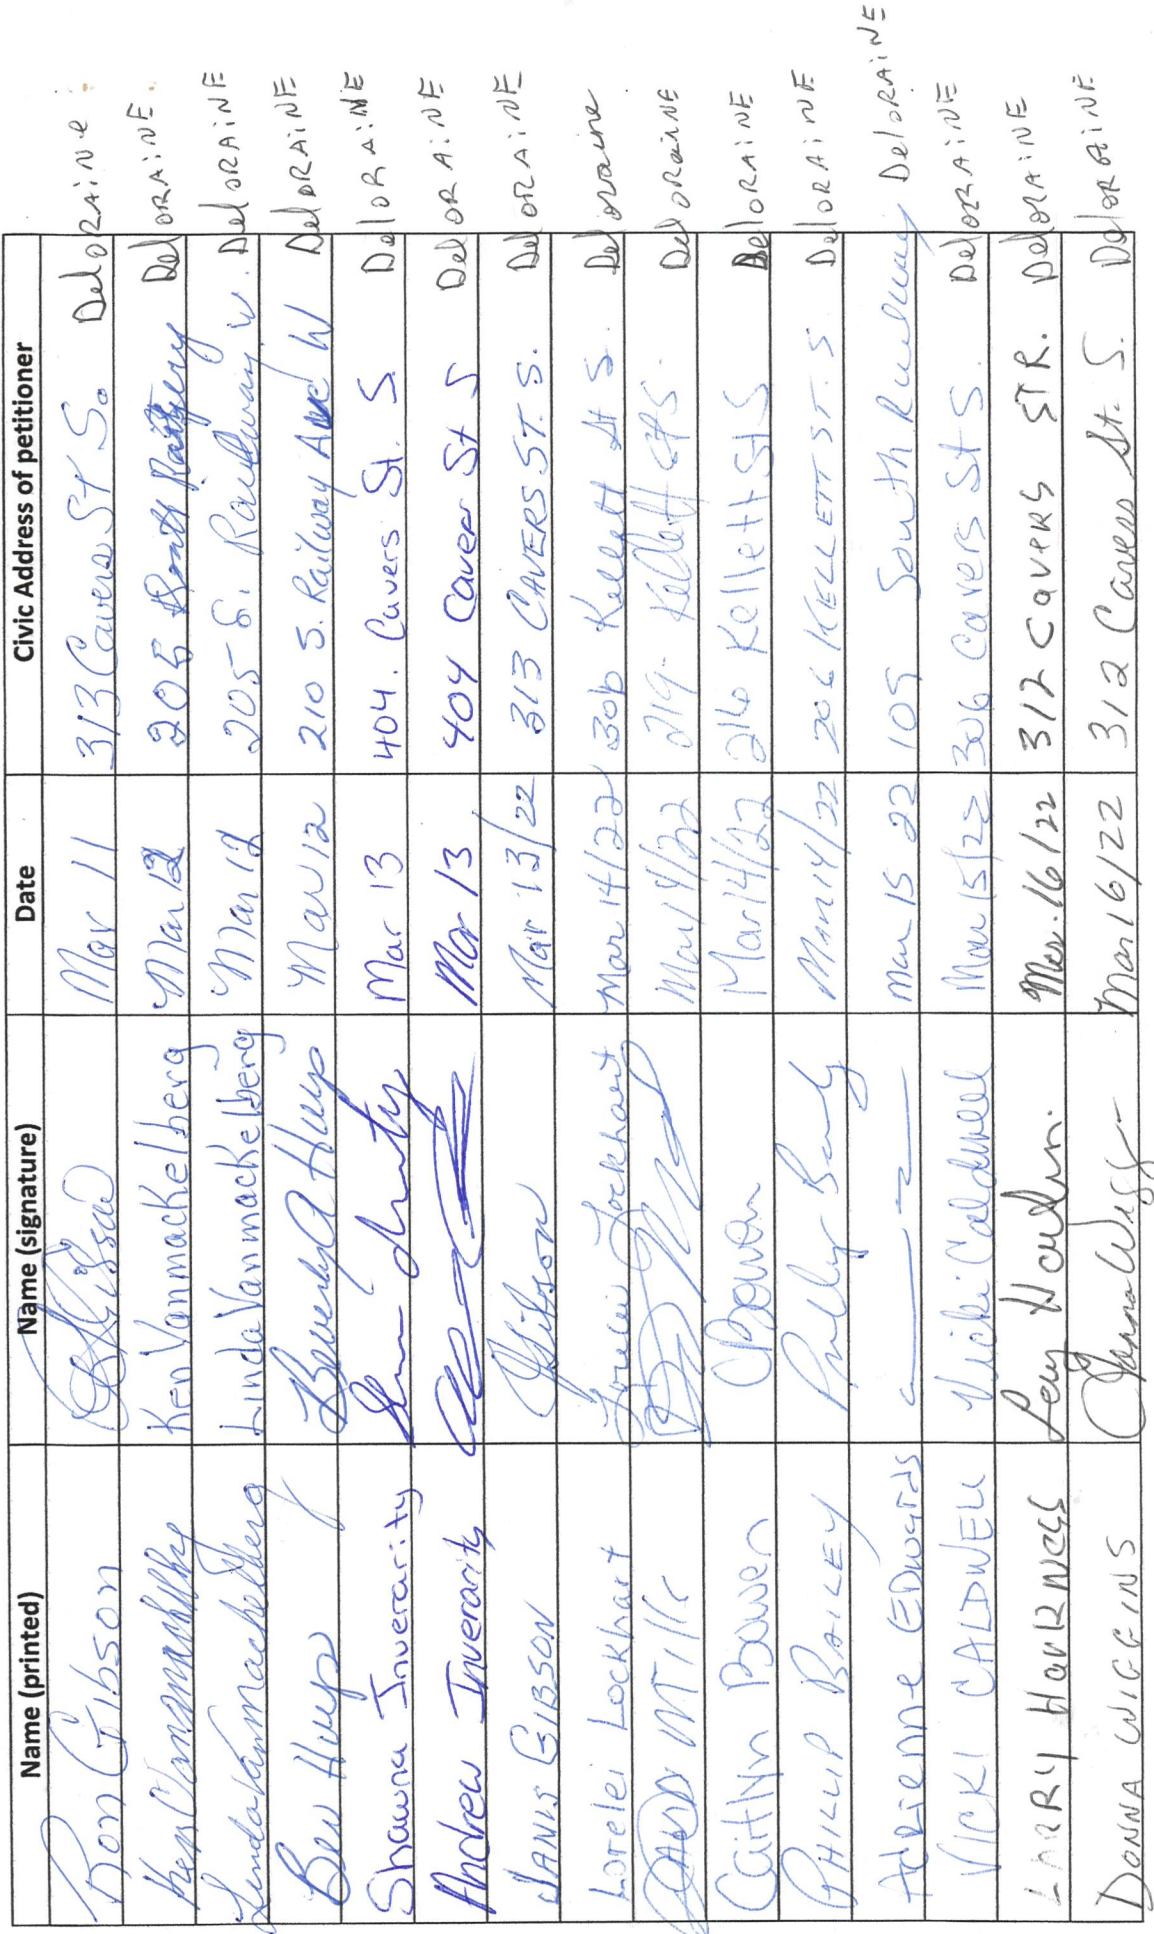 Name (printed) Name (signature) Date Civic Address of petitioner
Ron Gibson Mar 11 313 Cavers St S. DelORAiNe
Ken Vanmackelberg Ken Vanmackelberg Mar 12 205 South Railway DelORAiNE
Linda Vanmackelberg Linda Vanmackelberg Mar 12 205 S. Railway W. DelORAiNE
Bev Huys Beverly A Huys Mar 12 210 S. Railway Ave W DelORAiNE
Shawna Inverarity Mar 13 404. Cavers St. S DelORAiNE
Andrew Inverarity Mar 13 404 Caver St S DelORAiNE
JANIS GIBSON JGibson Mar 13/22 313 CAVERS ST. S. DelORAiNE
Lorelei Lockhart Lorelei Lockhart Mar 14/22 306 Kellett St S. Deloraine
Mar 14/22 219 Kellett St S. DelORaiNE
Caitlyn Bowen CBowen Mar 14/22 216 Kellett St S DelORAiNE
PHILLIP BAILEY Mar 14/22 206 KELLETT ST. S DelORAiNE
Adrienne EDwards Mar 15 22 109 South Railway DelORAiNE
VICKI CALDWELL Vicki Caldwell Mar 15/22 306 Cavers St S. DelORAiNE
LARRY HarkNess Mar. 16/22 312 CaVERS STR. DelORAiNE
DONNA WIGGINS Mar 16/22 312 Cavers St. S. DelORAiNE